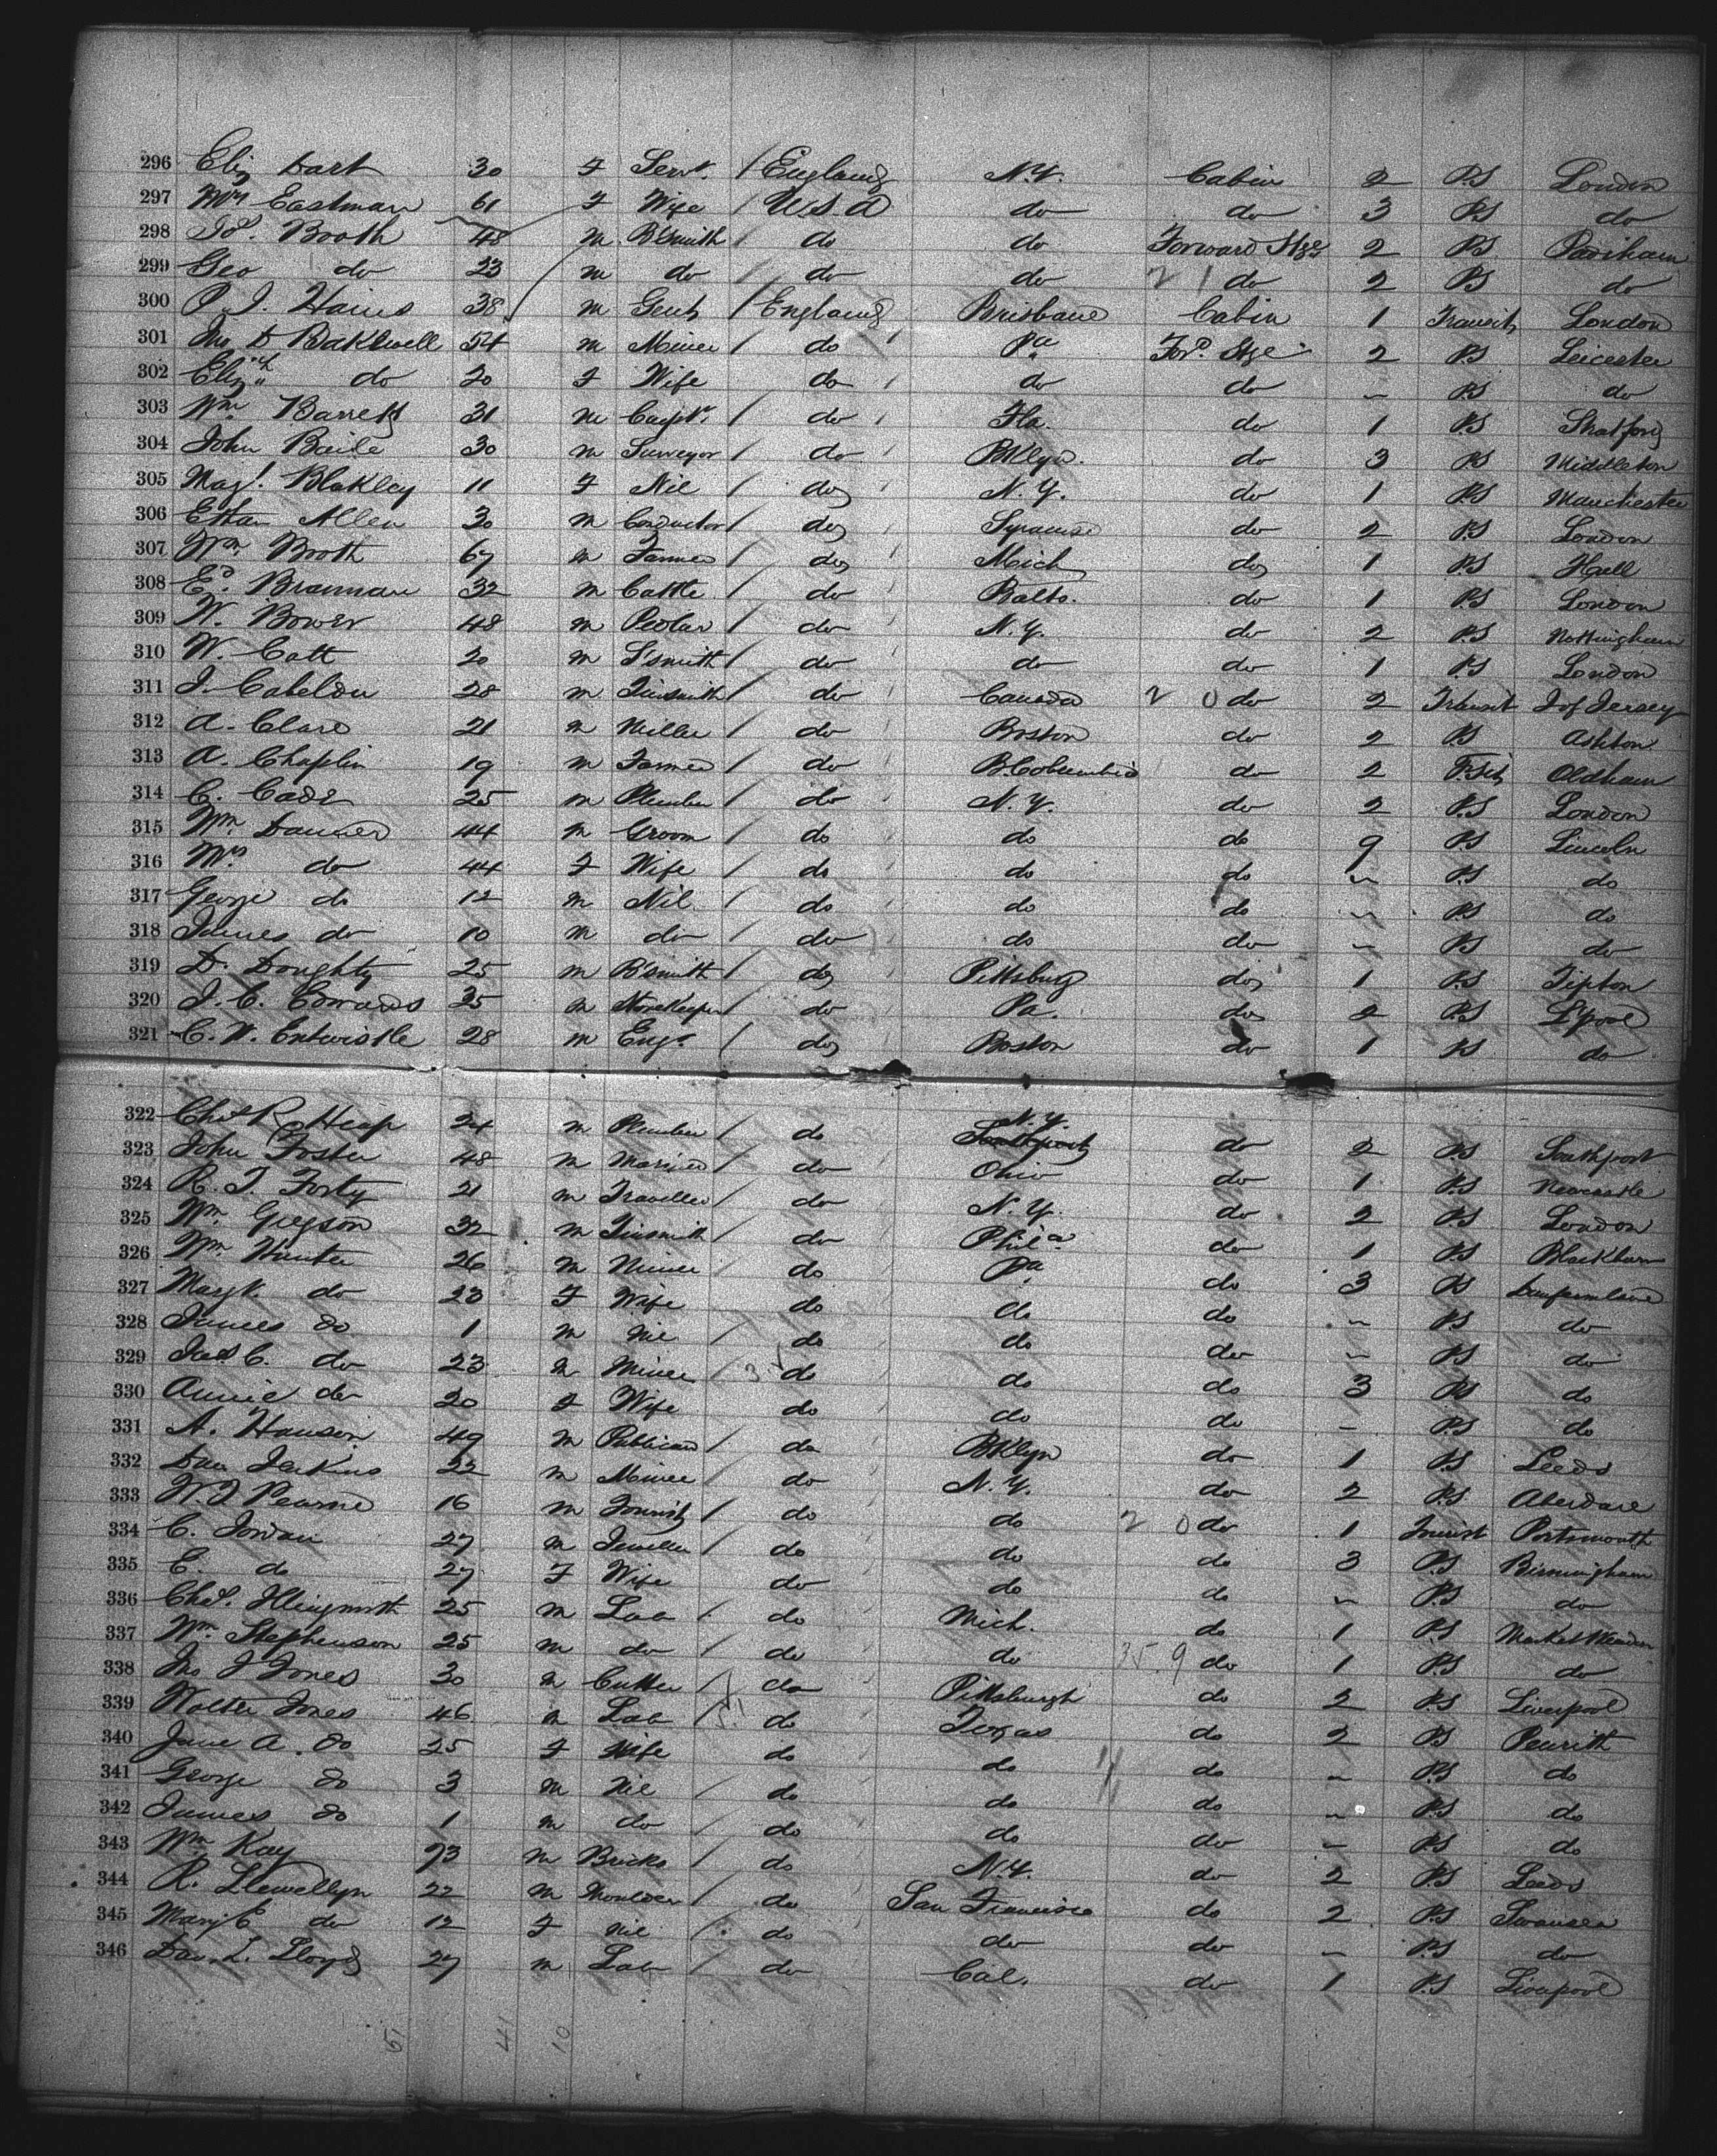 296 Eliz Dart 30 F Servt. / England N.Y. Cabin 2 P.S London
297 Mrs Eastman 61 F Wife / U.S.A do do 3 P.S do
298 Jos. Booth 48 m B'Smith / do do Forward Stge 2 P.S Padiham
299 Geo do 23 m do / do do 2 1 do 2 P.S do
300 P. J. Hains 38 m Gent / England Brisbane Cabin 1 Transit London
301 Jno D Bakewell 54 m Miner / do Pa Ford. Stge 2 P.S Leicester
302 Elizth do 20 F Wife do do do " P.S do
303 Wm Barrett 31 m Carptr. / do Fla. do 1 P.S
304 John Baile 30 m Surveyor / do BKlyn. do 3 P.S Middleton
305 Magt. Blakley 11 F Nil / do N.Y. do 1 P.S Manchester
306 Allen 30 m Conductor / do Syracuse do 2 P.S London
307 Wm Booth 67 m Farmer / do Mich do 1 P.S Hull
308 Ed. Brannan 32 m Cattle / do Balto. do 1 P.S London
309 W. Bower 48 m Pedlar / do N.Y. do 2 P.S Nottingham
310 W. Catt 20 m S'smith / do do do 1 P.S London
311 J. Cabeldu 28 m Tinsmith / do Canada 2 0 do 2 Transit I of Jersey
312 A. Clare 21 m Miller / do Boston do 2 P.S Ashton
313 A. Chaplin 19 m Farmer / do B.Columbia do 2 T.sit Oldham
314 C. Cade 25 m Plumber / do N.Y. do 2 P.S London
315 Wm 44 m Groom / do do do 9 P.S Lincoln
316 Mrs do 44 F Wife / do do do " P.S do
317 George do 12 m Nil / do do do " P.S do
318 James do 10 m do / do do do " P.S do
319 D. Doughty 25 m B'smith / do Pittsburg do 1 P.S Tipton
320 J. C. Edwards 35 m Storekeeper / do Pa. do 2 P.S L'pool
321 C. W. Entwistle 28 m Engr / do Boston do 1 P.S do
322 Chas R Heap 24 m Plumber / do N.Y. do 2 P.S Southport
323 John Foster 48 m Mariner / do Ohio do 1 P.S Newcastle
324 R. T. Forty 21 m Traveller / do N.Y. do 2 P.S London
325 Wm Gregson 32 m Tinsmith / do Phila. do 1 P.S Blackburn
326 Wm Hunter 26 m Miner / do Pa do 3 P.S Dunfermline
327 do 23 F Wife do do do " P.S do
328 James do 1 m nil / do do do " P.S do
329 Jas C. do 23 m Miner / 35 do do do 3 P.S do
330 Annie do 20 F Wife do do do - P.S do
331 A. Hanson 49 m Publican / do BKlyn do 1 P.S Leeds
332 Dav Jenkins 22 m Miner do N.Y. do 2 P.S Aberdare
333 W. J Pearne 16 m Tourist / do do 2 0 do 1 Tourist Portsmouth
334 C. Jordan 27 m Jeweller / do do do 3 P.S Birmingham
335 E. do 27 F Wife do do do " P.S do
336 Chas. Illingworth 25 m Lab / do Mich. do 1 P.S Market Weighton
337 Wm. Stephenson 25 m do do do 35.9 do 1 P.S do
338 Jno J Jones 30 m Cutter / do Pittsburgh do 2 P.S Liverpool
339 Walter Jones 46 m Lab / do Texas do 2 P.S Penrith
340 Jane A. do 25 F Wife do do do " P.S do
341 George do 3 m Nil / do do do " P.S do
342 James do 1 m do / do do do " P.S do
343 Wm Kay 23 m Bricks / do N.Y. do 2 P.S Leeds
344 R. Llewellyn 22 m Moulder / do San Francisco do 2 P.S Swansea
345 Mary E do 12 F nil / do do do - P.S do
346 Dav. L. Lloyd 27 m Lab / do Cal. do 1 P.S Liverpool
51 41 10